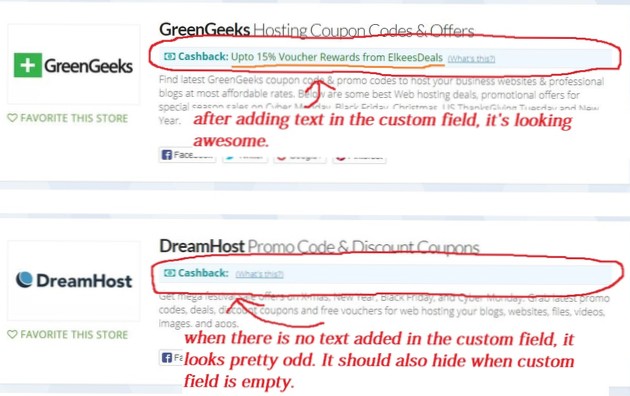 GreenGeeks Hosting Coupon Codes & Offers
Cashback: Upto 15% Voucher Rewards from ElkeesDeals (What's this?)
GreenGeeks
Find latest GreenGeeks coupon code & promo codes to host your business websites & professional
blogs at most affordable rates. Below are some best Web hosting deals, promotional offers for
special season sales on Cyber Monday, Black Friday, Christmas, US ThanksGiving Tuesday and New
Year.
FAVORITE THIS STORE
after adding text in the custom field, it's looking
awesome.
DreamHost Promo Code & Discount Coupons
Cashback: (What's this?)
DreamHost
Get mega festival offers on X-mas, New Year, Black Friday, and Cyber Monday. Grab latest promo
codes, deals, discount coupons and free vouchers for web hosting your blogs, websites, files, videos,
images, and apps.
FAVORITE THIS STORE
when there is no text added in the custom field, it
looks pretty odd. It should also hide when custom
field is empty.